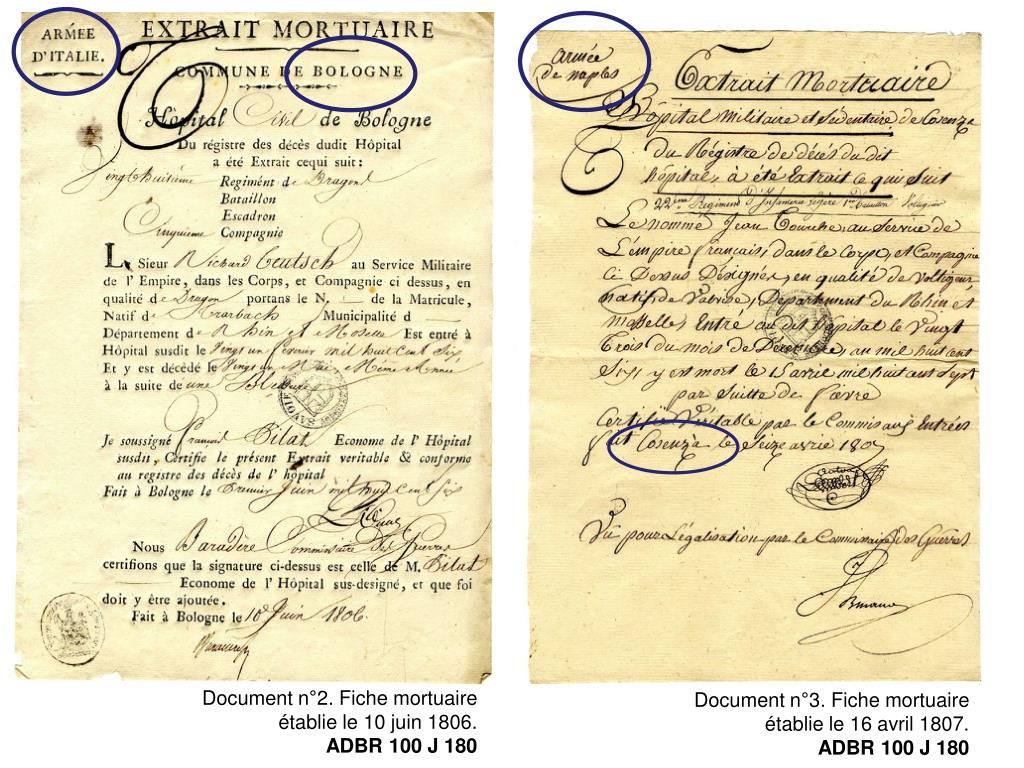 ARMÉE
D'ITALIE.
EXTRAIT MORTUAIRE
COMMUNE DE BOLOGNE
Hôpital Civil de Bologne
Du régistre des décès dudit Hôpital
a été Extrait cequi suit :
Vingt huitième Regiment de Dragons
Bataillon
Escadron
Cinquieme Compagnie
Le Sieur Richard Teutsch au Service Militaire
de l' Empire, dans les Corps, et Compagnie ci dessus, en
qualité de Dragon portans le N. de la Matricule,
Natif de Trarbach Municipalité d
Département de Rhin et Moselle Est entré à
Hôpital susdit le Vingt un fevrier mil huit cent six
Et y est décédé le Vingt un Mai, Meme Année
à la suite de une
Je soussigné François Pilat Econome de l' Hôpital
susdit, Certifie le présent Extrait veritable & conforme
au registre des décès de l' hôpital
Fait à Bologne le Premier Juin mil huit cent six
Nous Baradère Commissaire des Guerres
certifions que la signature ci-dessus est celle de M. Pilat
Econome de l' Hôpital sus-designé, et que foi
doit y être ajoutée.
Fait à Bologne le 10 Juin 1806.
Document n°2. Fiche mortuaire
établie le 10 juin 1806.
ADBR 100 J 180
Armée
de naples
Extrait Mortuaire
Hôpital Militaire et Sédentaire de Cosenza
Du Régistre de décés du dit
hôpital, à été Extrait ce qui Suit
22eme Regiment d'Infanterie légère 1er Bataillon
Le nommé Jean Tourche, au Service de
L'empire français, dans le Corps, et Compagnie
Ci Dessus Désignés, en qualité de Voltigeur
natif de Département du Rhin et
Moselle, Entré au dit hôpital le Vingt
Trois du mois de Décembre, au mil huit cent
Six, y est mort le 15 avril mil huit cent Sept
par Suitte de fievre
Certifié Véritable par le Commis aux Entrées
fait Cosenza le Seize avril 1807
Vu pour Légalisation par le Commissaire Des Guerres
Document n°3. Fiche mortuaire
établie le 16 avril 1807.
ADBR 100 J 180